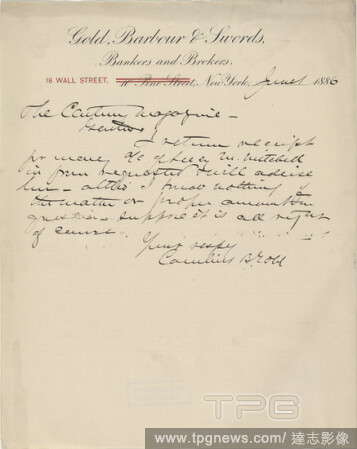 Gold, Barbour & Swords,
Bankers and Brokers.
18 WALL STREET, New York, June 1 1886
The Century Magazine—
I return receipt
for money
in form requested & will advise
him — altho' I know nothing of
the matter or proper amount in
question — suppose it is all right
of course.
Yours respy
Cornelius B Gold
TPG
www.tpgnews.com / 達志影像